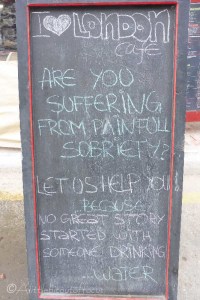 I ♥ LONDON
CAFÉ
ARE YOU
SUFFERING
FROM PAINFULL
SOBRIETY?
LET US HELP YOU!
BECAUSE
NO GREAT STORY
STARTED WITH
SOMEONE DRINKING
...WATER